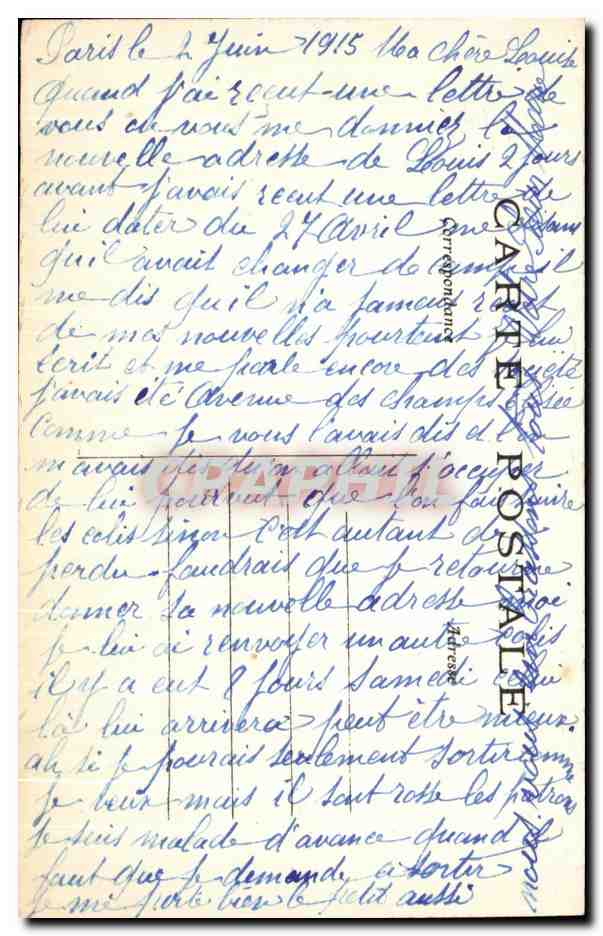 Paris le 2 Juin 1915 Ma chère Louise
Quand j'ai recut une lettre de
vous ou vous me donniez la
nouvelle adresse de Louis 2 jours
avant j'avais recut une lettre de
lui dater du 27 Avril me disant
qu'il avait changer de camp il
me dis qu'il n'a jamais recut
de mes nouvelles pourtant je lui
écrit et me parle encore des
j'avais été Avenue des champs élisée
comme je vous l'avais dis et l'on
m'avais dis qu'on allait s'occuper
de lui pourvut que l'on fasse suivre
les colis sinon c'est autant de
perdu faudrais que je retourne
donner sa nouvelle adresse moi
je lui ai renvoyer un autre colis
il y a eut 8 jours Samedi celui
là lui arrivera peut être mieux
ah si je pourais seulement sortir comme
je veux mais il sont rosse les patrons
je suis malade d'avance quand il
faut que je demande a sortir
je me porte bien le petit aussi
CARTE POSTALE
Correspondance
Adresse
CPAPHIL